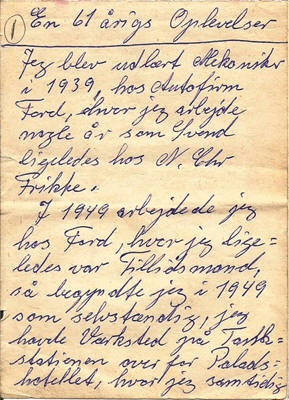 1
En 61 årigs Oplevelser
Jeg blev udlært Mekaniker
i 1939, hos Autofirm
Ford, hvor jeg arbejde
nogle år som Svend
ligeledes hos N. Chr
Frikke.
I 1949 arbejdede jeg
hos Ford, hvor jeg lige=
ledes var Tillidsmand,
så begyndte jeg i 1949
som selvstændig, jeg
havde Værksted på
stationen over for Palads=
hotellet, hvor jeg samtidig